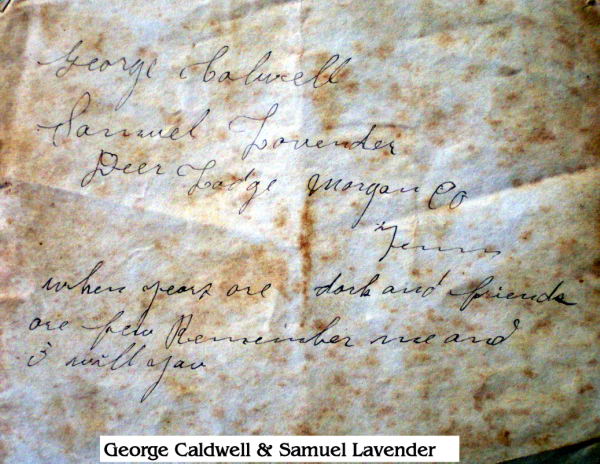 George Calwell
Samuel Lavender
Deer Lodge Morgan Co
Tenn
when years are dark and friends
are few Remember me and
i will you
George Caldwell & Samuel Lavender